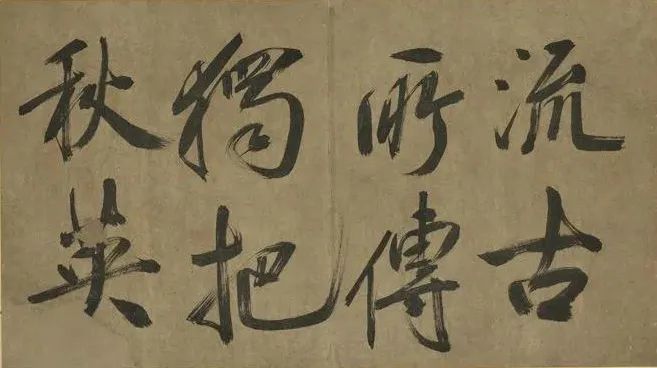 流古
所傳
獨把
秋英